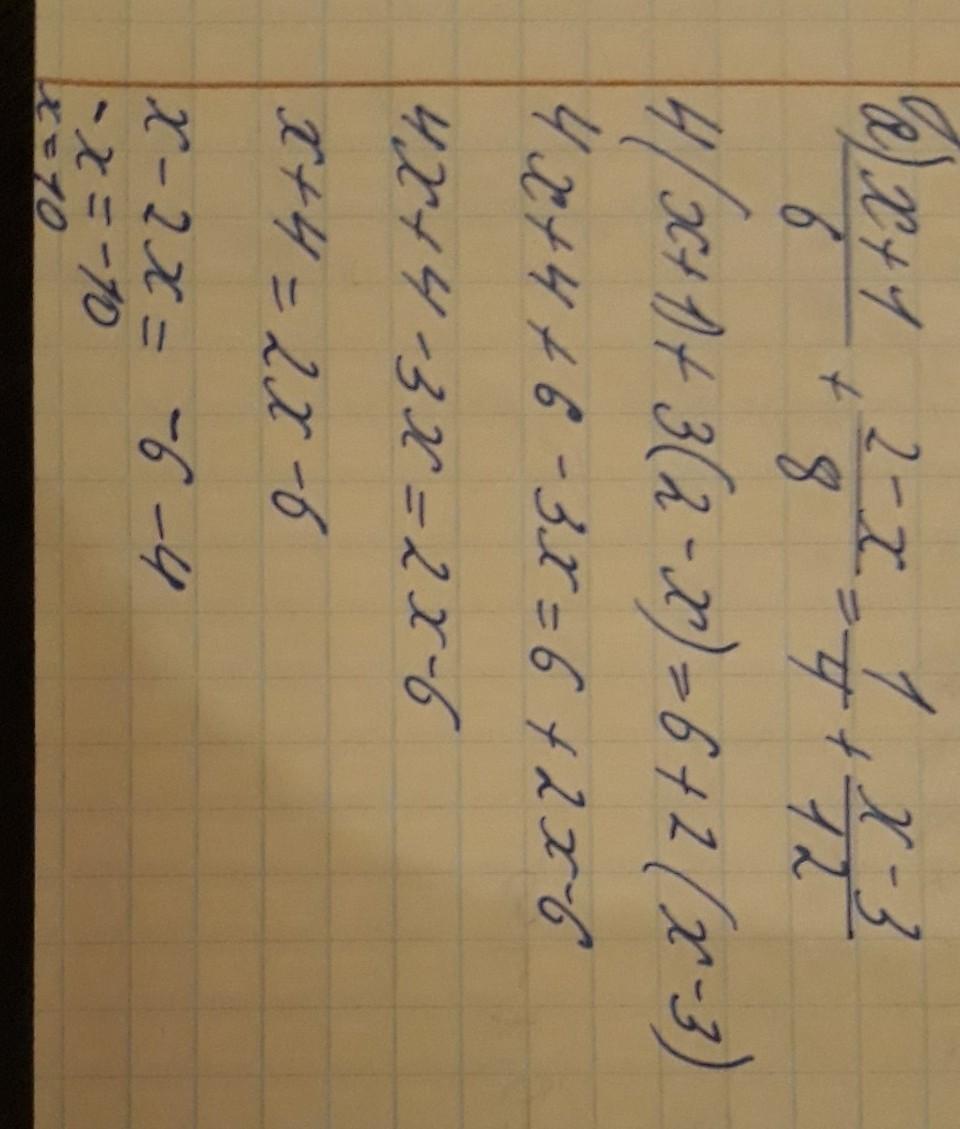 в) x+1/6 + 2-x/8 = 1/4 + x-3/12
4(x+1)+3(2-x)=6+2(x-3)
4x+4+6-3x=6+2x-6
4x+4-3x=2x-6
x+4=2x-6
x-2x=-6-4
-x=-10
x=10